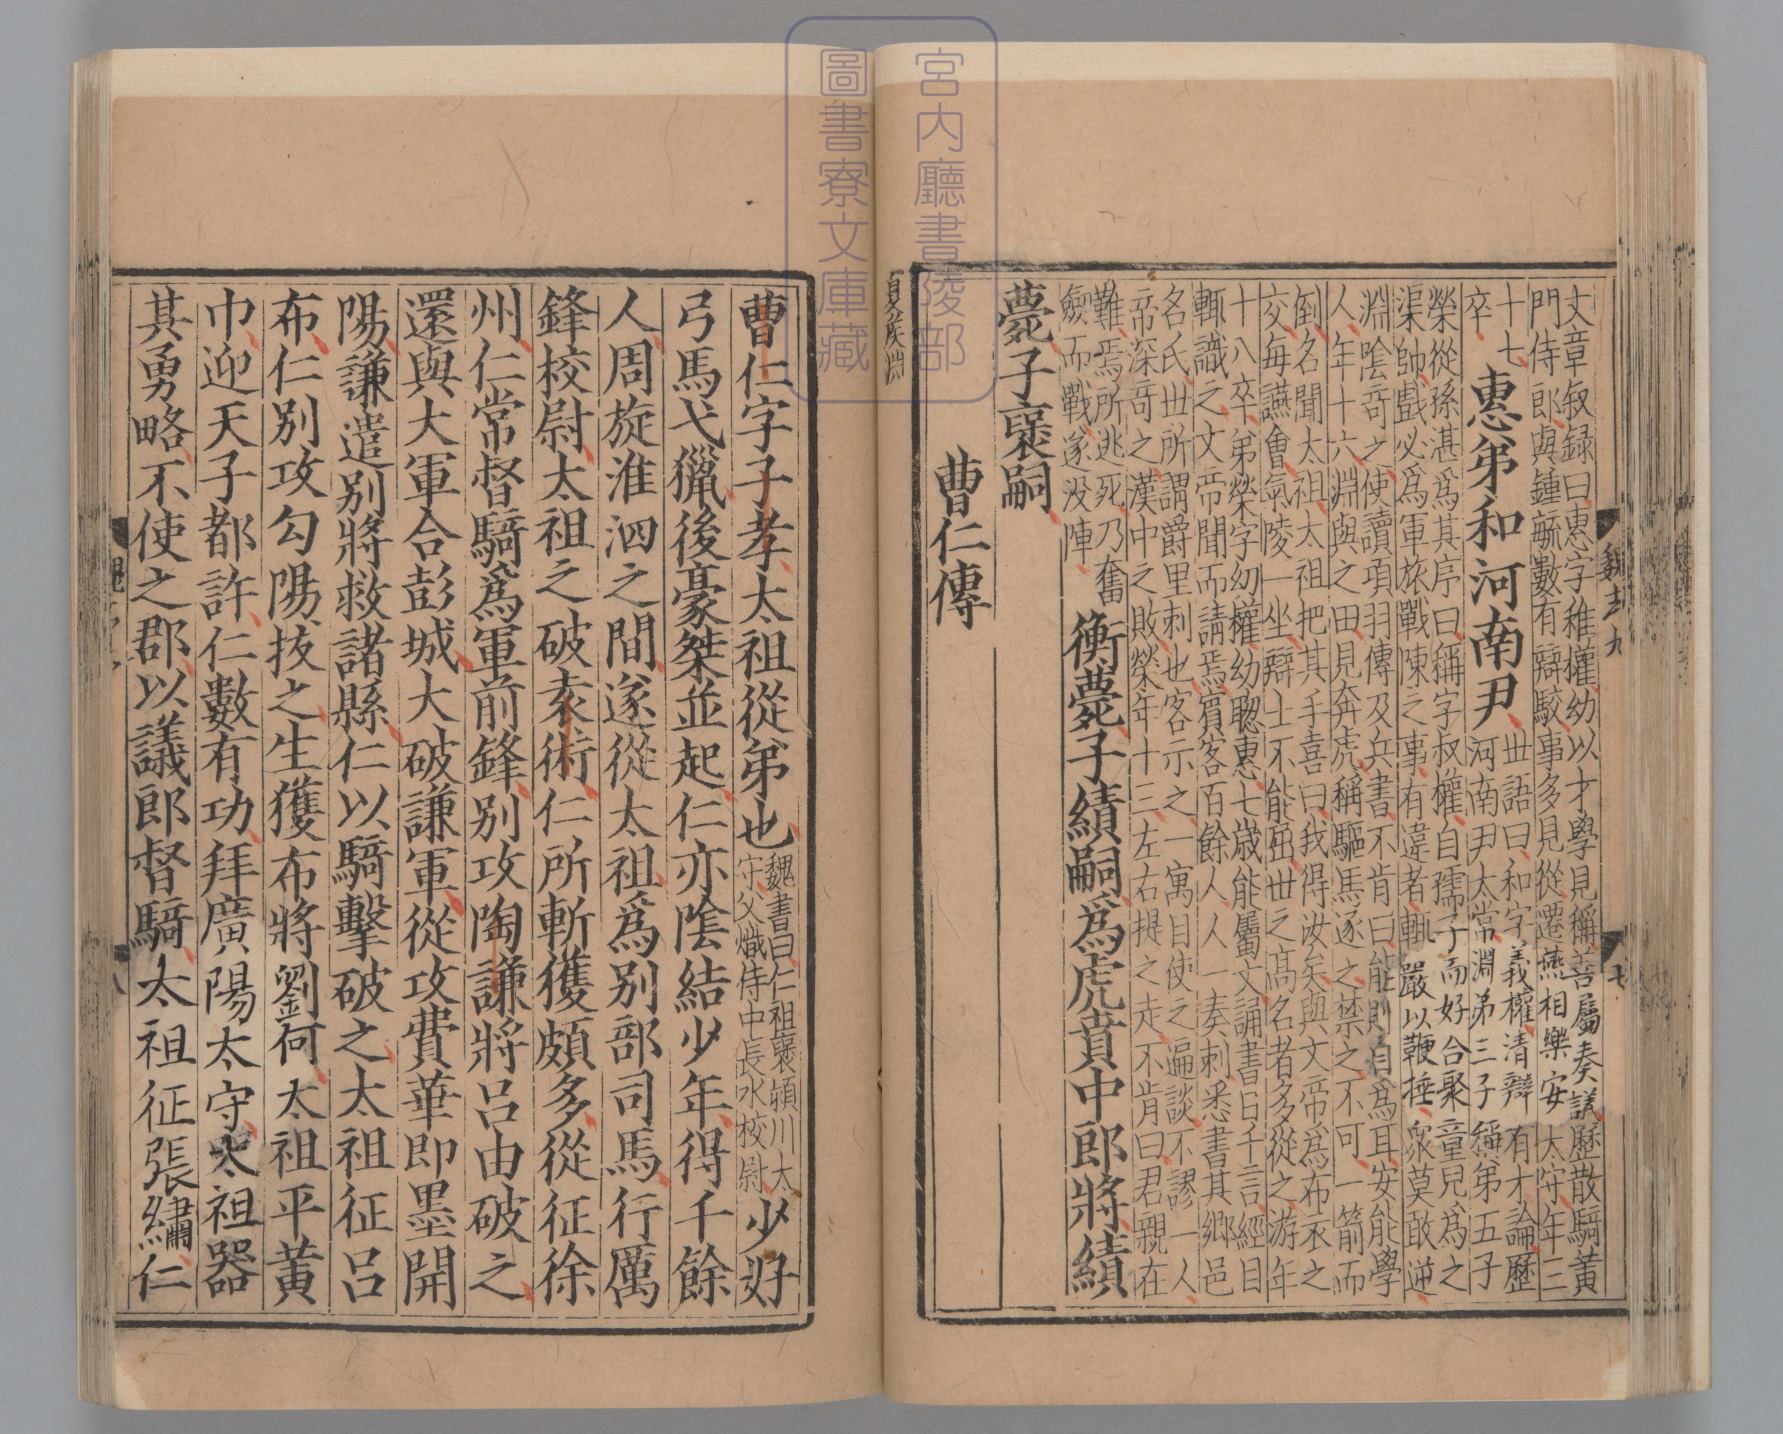 文章叙録曰惠字稚權幼以才學見稱善屬奏議歷散騎黃
門侍郎與鍾毓數有辯駮事多見從遷燕相樂安太守年三
十七
卒
惠弟和河南尹
世語曰和字義權清辯有才論歷
河南尹太常淵第三子稱第五子
榮從孫湛爲其序曰稱字叔權自孺子而好合聚童兒爲之
渠帥戲必爲軍旅戰陳之事有違者輒嚴以鞭捶衆莫敢逆
淵陰奇之使讀項羽傳及兵書不肯曰能則自爲耳安能學
人年十六淵與之田見奔虎稱驅馬逐之禁之不可一箭而
倒名聞太祖太祖把其手喜曰我得汝矣與文帝爲布衣之
交每讌會氣陵一坐辯士不能屈世之髙名者多從之游年
十八卒弟榮字幼權幼聦惠七歳能屬文誦書日千言經目
輒識之文帝聞而請焉賓客百餘人人一奏刺悉書其鄉邑
名氏世所謂爵里刺也客示之一寓目使之遍談不謬一人
帝深奇之漢中之敗榮年十三左右提之走不肯曰君親在
難焉所逃死乃奮
劒而戰遂没陣
衡薨子績嗣爲虎賁中郎將績
薨子襃嗣
曹仁傳
曹仁字子孝太祖從弟也
魏書曰仁祖襃潁川太
守父熾侍中長水校尉
少好
弓馬弋獵後豪桀並起仁亦陰結少年得千餘
人周旋淮泗之間遂從太祖爲別部司馬行厲
鋒校尉太祖之破袁術仁所斬獲頗多從征徐
州仁常督騎爲軍前鋒別攻陶謙將吕由破之
還與大軍合彭城大破謙軍從攻費華即墨開
陽謙遣別將救諸縣仁以騎擊破之太祖征吕
布仁別攻勾陽拔之生獲布將劉何太祖平黃
巾迎天子都許仁數有功拜廣陽太守太祖器
其勇略不使之郡以議郎督騎太祖征張繡仁
魏志九
七
宮内廳書陵部
圖書寮文庫藏